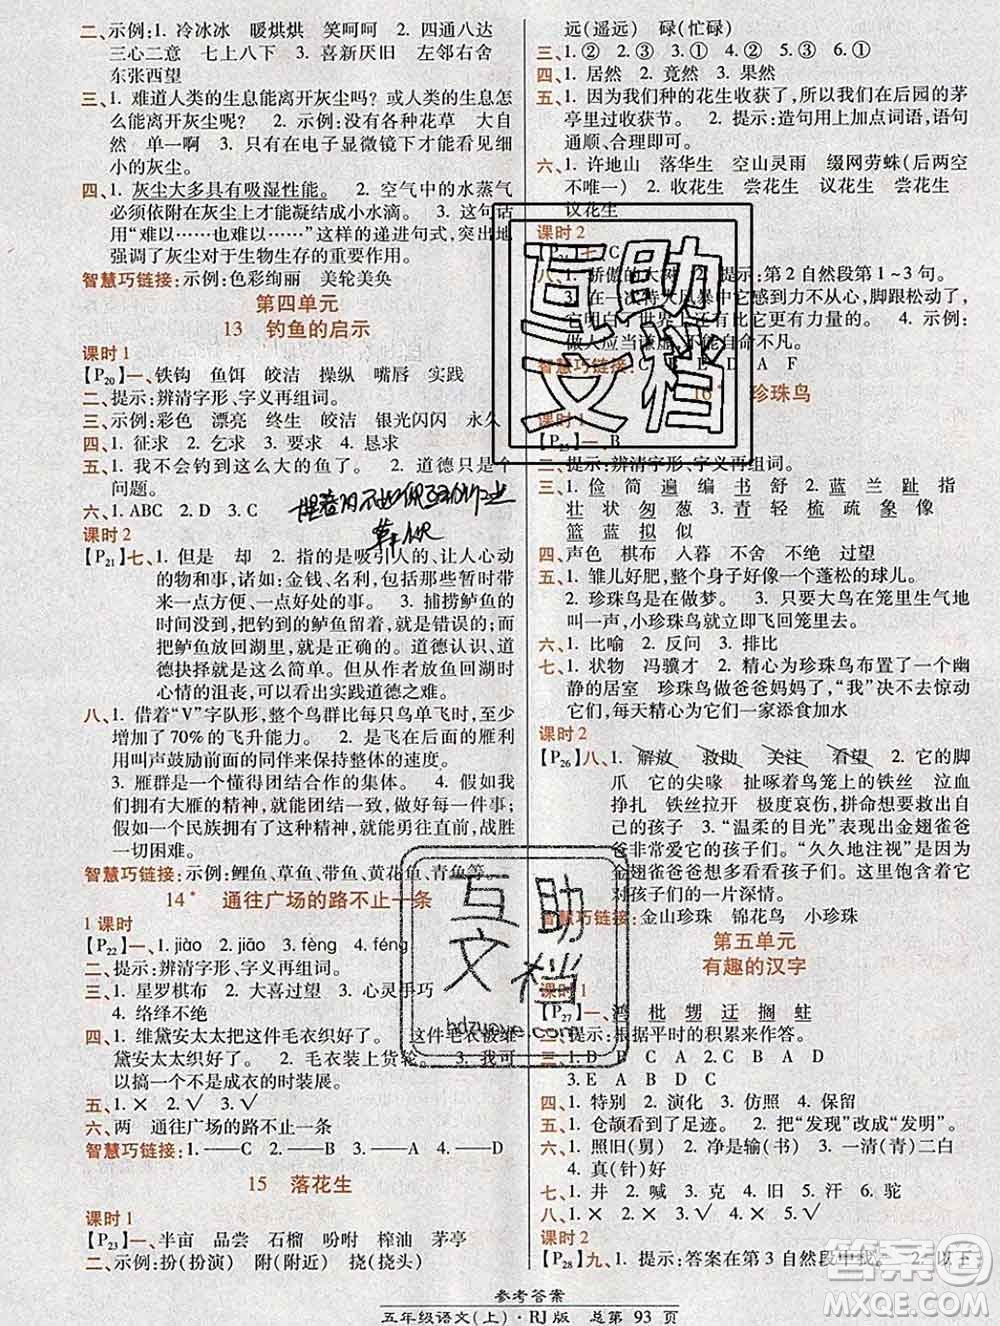 二、示例:1. 冷冰冰 暖烘烘 笑呵呵 2. 四通八达
三心二意 七上八下 3. 喜新厌旧 左邻右舍
东张西望
三、1. 难道人类的生息能离开灰尘吗？或人类的生息怎
么能离开灰尘呢？ 2. 示例:没有各种花草 大自
然 单一啊 3. 只有在电子显微镜下才能看见细
小的灰尘。
四、1. 灰尘大多具有吸湿性能。 2. 空气中的水蒸气
必须依附在灰尘上才能凝结成小水滴。 3. 这句话
用“难以……也难以……”这样的递进句式，突出地
强调了灰尘对于生物生存的重要作用。
智慧巧链接:示例:色彩绚丽 美轮美奂
第四单元
13 钓鱼的启示
课时1
【P20】一、铁钩 鱼饵 皎洁 操纵 嘴唇 实践
二、提示:辨清字形、字义再组词。
三、示例:彩色 漂亮 终生 皎洁 银光闪闪 永久
四、1. 征求 2. 乞求 3. 要求 4. 恳求
五、1. 我不会钓到这么大的鱼了。 2. 道德只是个
问题。
六、1. ABC 2. D 3. C
课时2
【P21】七、1. 但是 却 2. 指的是吸引人的、让人心动
的物和事，诸如:金钱、名利，包括那些暂时带
来一点方便、一点好处的事。 3. 捕捞鲈鱼的
时间没到，把钓到的鲈鱼留着，就是错误的；而
把鲈鱼放回湖里，就是正确的。道德认识、道德
抉择就是这么简单。但从作者放鱼回湖时
心情的沮丧，可以看出实践道德之难。
八、1. 借着“V”字队形，整个鸟群比每只鸟单飞时，至少
增加了70%的飞升能力。 2. 是飞在后面的雁利
用叫声鼓励前面的同伴来保持整体的速度。
3. 雁群是一个懂得团结合作的集体。 4. 我们假如
拥有大雁的精神，就能团结一致，做好每一件事；
假如一个民族拥有了这种精神，就能勇往直前，战胜
一切困难。
智慧巧链接:示例:鲤鱼、草鱼、带鱼、黄花鱼、青鱼等
14* 通往广场的路不止一条
1课时
【P22】一、1. jiào 2. jiāo 3. fèng 4. féng
二、提示:辨清字形、字义再组词。
三、1. 星罗棋布 2. 大喜过望 3. 心灵手巧
4. 络绎不绝
四、1. 维黛安太太把这件毛衣织好了。 这件毛衣被维
黛安太太织好了。 2. 毛衣装上货轮。 3. 我可
以搞一个不是成衣的时装展。
五、1. × 2. √ 3. √
六、两 通往广场的路不止一条
智慧巧链接:1. ——C 2. ——A 3. ——B 4. ——D
15 落花生
课时1
【P23】一、半亩 品尝 石榴 吩咐 榨油 茅亭
二、示例:扮(扮演) 附(附近) 挠(挠头)
远(遥远) 碌(忙碌)
三、1. ② 2. ③ 3. ① 4. ② 5. ③ 6. ①
四、1. 居然 2. 竟然 3. 果然
五、1. 因为我们种的花生收获了，所以在后园的茅
亭里过收获节。 2. 提示:造句用上加点词语，语句
通顺、合理即可。
六、1. 许地山 落华生 空山灵雨 缀网劳蛛(后两空
不唯一) 2. 收花生 尝花生 议花生 尝花生
议花生
课时2
八、1. 骄傲的大树 2. 提示:第2自然段第1～3句。
智慧巧链接:C E D A F
16* 珍珠鸟
课时1
【P25】一、B
二、提示:辨清字形、字义再组词。
三、1. 俭 简 遍 编 书 舒 2. 蓝 兰 趾 指
壮 状 匆 葱 3. 梳 疏 象 像
篮 蓝 拟 似
四、声色 棋布 入暮 不舍 不绝 过望
五、1. 雏儿好肥，整个身子好像一个蓬松的球儿。
2. 珍珠鸟是在做梦。 3. 只要大鸟在笼里生气地
叫一声，小珍珠鸟就立即飞回笼里去。
六、1. 比喻 2. 反问 3. 排比
七、1. 状物 冯骥才 2. 精心为珍珠鸟布置了一个幽
静的居室 珍珠鸟做爸爸妈妈了，“我”没有去惊动
它们，每天精心为它们一家添食加水
课时2
【P26】八、1. 解放 救助 关注 看望 2. 它的脚
爪 它的尖喙 扯啄着鸟笼上的铁丝 泣血
挣扎 铁丝拉开 极度哀伤，拼命想要救出自
己的孩子 3. “温柔的目光”表现出金翅雀爸
爸非常爱它的孩子们。“久久地注视”写出了
金翅雀爸爸对孩子们的一片深情。
智慧巧链接:金山珍珠 锦花鸟 小珍珠
第五单元
有趣的汉字
课时1
【P27】一、鸿 枇 甥 迂 搁 蛀
二、提示:根据平时的积累来作答。
三、1. D B 2. C A B C A D
3. B A D
四、1. 特别 2. 演化 3. 仿照 4. 保留
五、1. 仓颉看到了足迹。 2. 把“发现”改成“发明”。
六、1. 照旧(舅) 2. 净是输(书) 3. 一清(青)二白
4. 真(针)行
七、1. 井 2. 喊 3. 克 4. 旧 5. 生 6. 汗 7. 驼
八、1. × 2. × 3. √ 4. √
课时2
【P28】九、1. 提示:答案在第3自然段中找。 2. 以下
参考答案
五年级语文(上)·RJ版 总第 93 页
互助
文档
互助
文档
hdzuoye.com
答案圈
MXQE.COM